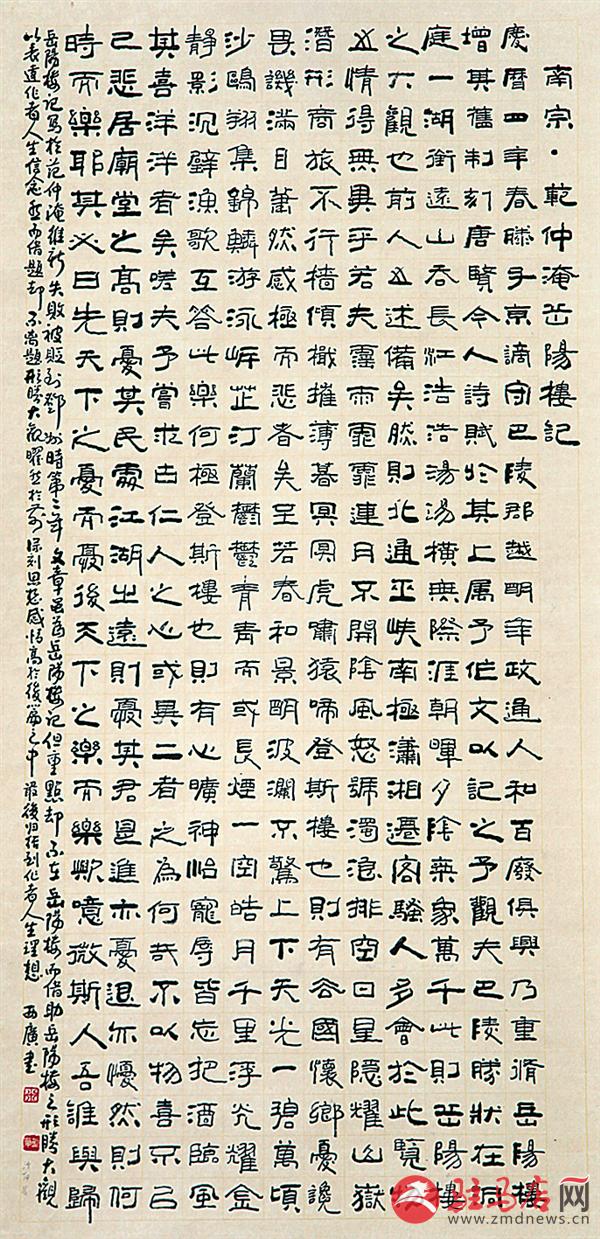 南宗·範仲淹岳陽樓記
慶曆四年春滕子京謫守巴陵郡越明年政通人和百廢俱興乃重脩岳陽樓
增其舊制刻唐賢今人詩賦於其上属予作文以記之予觀夫巴陵勝狀在洞
庭一湖銜遠山吞長江浩浩湯湯橫無際涯朝暉夕陰氣象萬千此則岳陽樓
之大觀也前人之述備矣然則北通巫峽南極瀟湘遷客騷人多會於此覽物
之情得無異乎若夫霪雨霏霏連月不開陰風怒號濁浪排空日星隱耀山嶽
潛形商旅不行檣傾檝摧薄暮冥冥虎嘯猿啼登斯樓也則有去國懷鄉憂讒
畏譏滿目蕭然感極而悲者矣至若春和景明波瀾不驚上下天光一碧萬頃
沙鷗翔集錦鱗游泳岸芷汀蘭鬱鬱青青而或長煙一空皓月千里浮光耀金
靜影沉璧漁歌互答此樂何極登斯樓也則有心曠神怡寵辱皆忘把酒臨風
其喜洋洋者矣嗟夫予嘗求古仁人之心或異二者之為何哉不以物喜不以
己悲居廟堂之高則憂其民處江湖之遠則憂其君是進亦憂退亦憂然則何
時而樂耶其必曰先天下之憂而憂後天下之樂而樂歟噫微斯人吾誰與歸
岳陽樓記寫於范仲淹維新失敗被貶到鄧州時第二年文章名為岳陽樓記但重點却不在岳陽樓而借助岳陽樓之形勝大觀
以表達作者人生信念而借題却不離題形勝大觀躍然於前深刻思想感悟高於後篇之中最後归結到作者人生理想 西廣書
驻马店网
www.zmdnews.cn